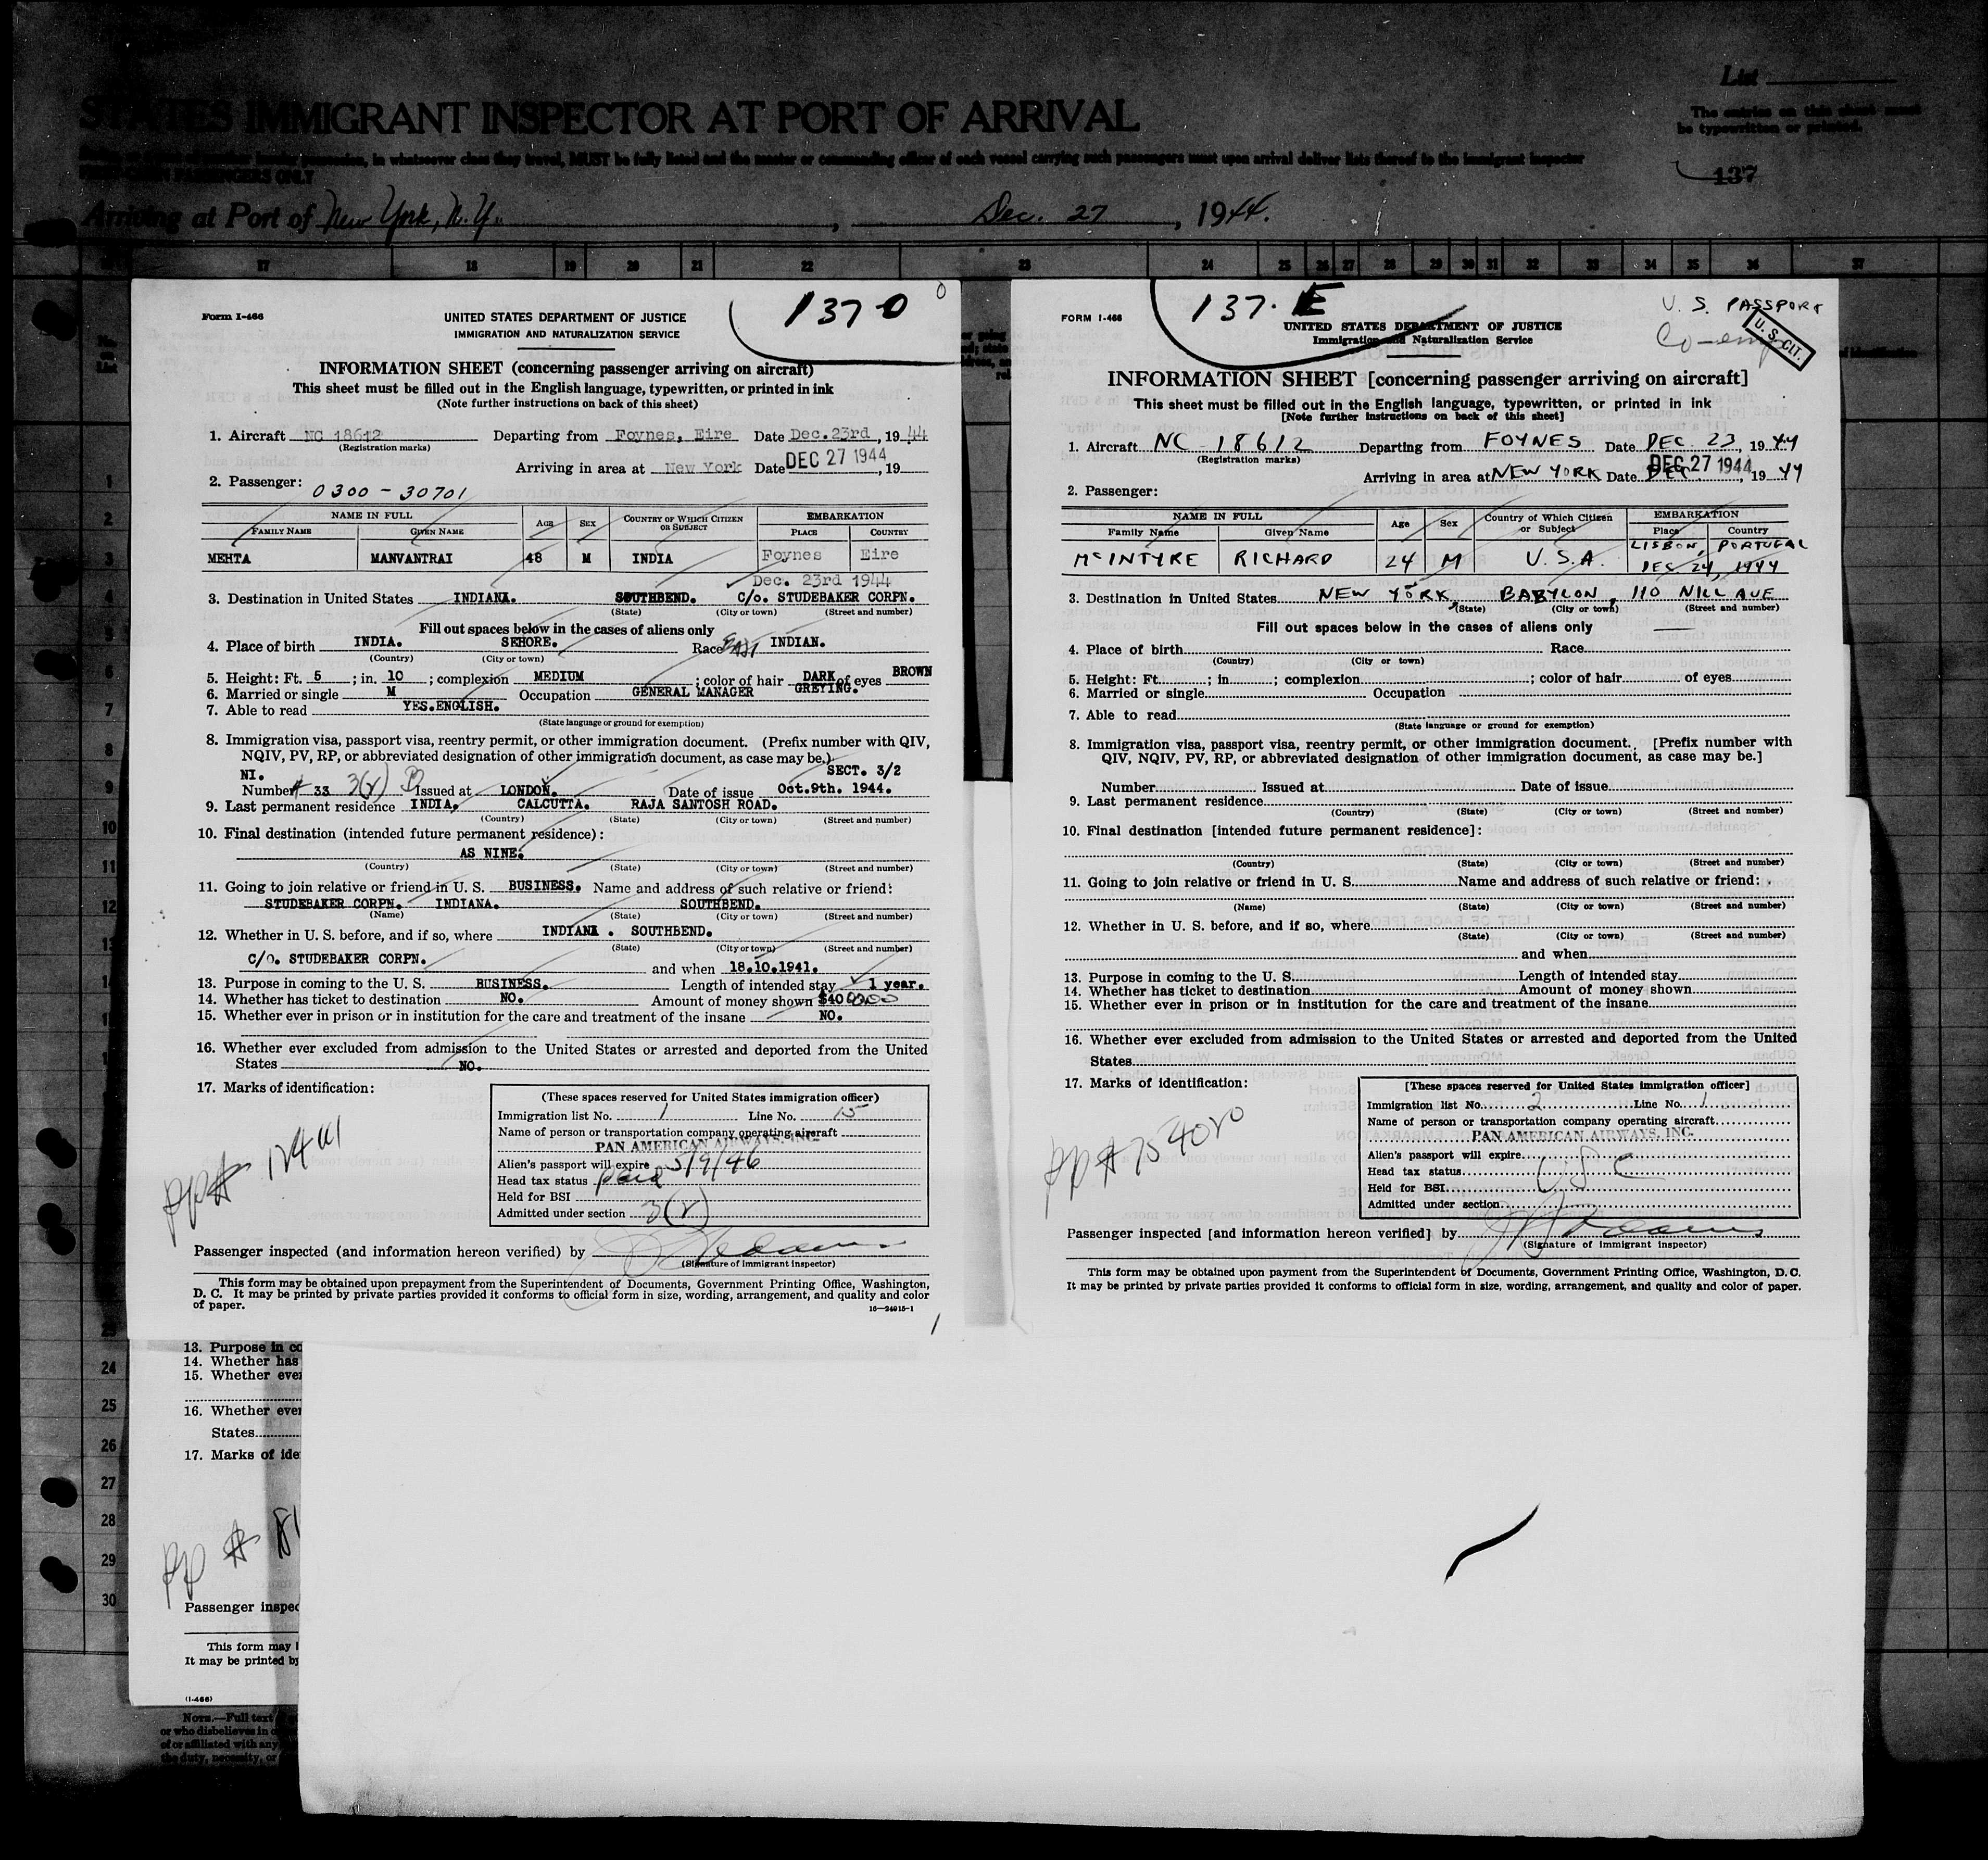 List
STATES IMMIGRANT INSPECTOR AT PORT OF ARRIVAL
The entries on this sheet must
be typewritten or printed.
in whatsoever class they travel, MUST be fully listed and the master or commanding officer of each vessel carrying such passengers must upon arrival deliver lists thereof to the immigrant inspector
PASSENGERS ONLY
137
Arriving at Port of New York, N.Y. , Dec. 27 , 1944.
17 18 19 20 21 22 23 24 25 26 27 28 29 30 31 32 33 34 35 36 37
Form I-466
137 O
UNITED STATES DEPARTMENT OF JUSTICE
IMMIGRATION AND NATURALIZATION SERVICE
INFORMATION SHEET (concerning passenger arriving on aircraft)
This sheet must be filled out in the English language, typewritten, or printed in ink
(Note further instructions on back of this sheet)
1. Aircraft NC 18612 Departing from Foynes, Eire Date Dec.23rd, 1944
(Registration marks)
Arriving in area at New York Date DEC 27 1944, 19
2. Passenger: 0300-30701
NAME IN FULL Age Sex COUNTRY OF WHICH CITIZEN OR SUBJECT EMBARKATION
FAMILY NAME GIVEN NAME PLACE COUNTRY
MEHTA MANVANTRAI 48 M INDIA Foynes Eire
Dec. 23rd 1944
3. Destination in United States INDIANA. SOUTHBEND. C/o. STUDEBAKER CORPN.
(State) (City or town) (Street and number)
Fill out spaces below in the cases of aliens only
4. Place of birth INDIA. SEHORE. Race EAST INDIAN.
(Country) (City or town)
5. Height: Ft. 5 ; in. 10 ; complexion MEDIUM ; color of hair DARK GREYING. of eyes BROWN
6. Married or single M Occupation GENERAL MANAGER
7. Able to read YES.ENGLISH.
(State language or ground for exemption)
8. Immigration visa, passport visa, reentry permit, or other immigration document. (Prefix number with QIV,
NQIV, PV, RP, or abbreviated designation of other immigration document, as case may be.)
NI. SECT. 3/2
Number # 33 3(2) Issued at LONDON. Date of issue Oct.9th. 1944.
9. Last permanent residence INDIA. CALCUTTA. RAJA SANTOSH ROAD.
(Country) (State) (City or town) (Street and number)
10. Final destination (intended future permanent residence):
AS NINE.
(Country) (State) (City or town) (Street and number)
11. Going to join relative or friend in U. S. BUSINESS. Name and address of such relative or friend:
STUDEBAKER CORPN. INDIANA. SOUTHBEND.
(Name) (State) (City or town) (Street and number)
12. Whether in U. S. before, and if so, where INDIANA . SOUTHBEND.
(State) (City or town) (Street and number)
C/o. STUDEBAKER CORPN. and when 18.10.1941.
13. Purpose in coming to the U. S. BUSINESS. Length of intended stay 1 year.
14. Whether has ticket to destination NO. Amount of money shown
15. Whether ever in prison or in institution for the care and treatment of the insane NO.
16. Whether ever excluded from admission to the United States or arrested and deported from the United
States NO.
17. Marks of identification:
pp#
(These spaces reserved for United States immigration officer)
Immigration list No. 1 Line No. 15
Name of person or transportation company operating aircraft
PAN AMERICAN AIRWAYS, INC.
Alien's passport will expire 5/9/46
Head tax status paid
Held for BSI
Admitted under section 3(2)
Passenger inspected (and information hereon verified) by
(Signature of immigrant inspector)
This form may be obtained upon prepayment from the Superintendent of Documents, Government Printing Office, Washington,
D. C. It may be printed by private parties provided it conforms to official form in size, wording, arrangement, and quality and color
of paper.
16—24915-1
FORM I-466
137. E
U. S. PASSPORT
U. S. CIT.
UNITED STATES DEPARTMENT OF JUSTICE
Immigration and Naturalization Service
INFORMATION SHEET [concerning passenger arriving on aircraft]
This sheet must be filled out in the English language, typewritten, or printed in ink
[Note further instructions on back of this sheet]
1. Aircraft NC 18612 Departing from FOYNES Date DEC. 23, 1944
(Registration marks)
Arriving in area at NEW YORK Date DEC. DEC 27 1944, 1944
2. Passenger:
NAME IN FULL Age Sex Country of Which Citizen or Subject EMBARKATION
Family Name Given Name Place Country
McINTYRE RICHARD 24 M U.S.A. LISBON, PORTUGAL
DEC 24, 1944
3. Destination in United States NEW YORK, BABYLON, 110 NILL AVE
(State) (City or town) (Street and number)
Fill out spaces below in the cases of aliens only
4. Place of birth Race
(Country) (City or town)
5. Height: Ft. ; in ; complexion ; color of hair of eyes
6. Married or single Occupation
7. Able to read
(State language or ground for exemption)
8. Immigration visa, passport visa, reentry permit, or other immigration document. [Prefix number with
QIV, NQIV, PV, RP, or abbreviated designation of other immigration document, as case may be.]
Number Issued at Date of issue
9. Last permanent residence
(Country) (State) (City or town) (Street and number)
10. Final destination [intended future permanent residence]:
(Country) (State) (City or town) (Street and number)
11. Going to join relative or friend in U. S. Name and address of such relative or friend:
(Name) (State) (City or town) (Street and number)
12. Whether in U. S. before, and if so, where
(State) (City or town) (Street and number)
and when
13. Purpose in coming to the U. S. Length of intended stay
14. Whether has ticket to destination Amount of money shown
15. Whether ever in prison or in institution for the care and treatment of the insane
16. Whether ever excluded from admission to the United States or arrested and deported from the United
States
17. Marks of identification:
pp#
[These spaces reserved for United States immigration officer]
Immigration list No. 2 Line No. 1
Name of person or transportation company operating aircraft
PAN AMERICAN AIRWAYS, INC.
Alien's passport will expire
Head tax status USC
Held for BSI
Admitted under section
Passenger inspected [and information hereon verified] by
(Signature of immigrant inspector)
This form may be obtained upon payment from the Superintendent of Documents, Government Printing Office, Washington, D. C.
It may be printed by private parties provided it conforms to official form in size, wording, arrangement, and quality and color of paper.
13. Purpose in co
14. Whether has
15. Whether ever
16. Whether ever
States
17. Marks of ide
pp #
Passenger inspec
This form may
It may be printed by
(I-466)
NOTE.—Full text
or who disbelieves in
of or affiliated with any
the duty, necessity, or
1
2
3
4
5
6
7
8
9
10
11
12
24
25
26
27
28
29
30